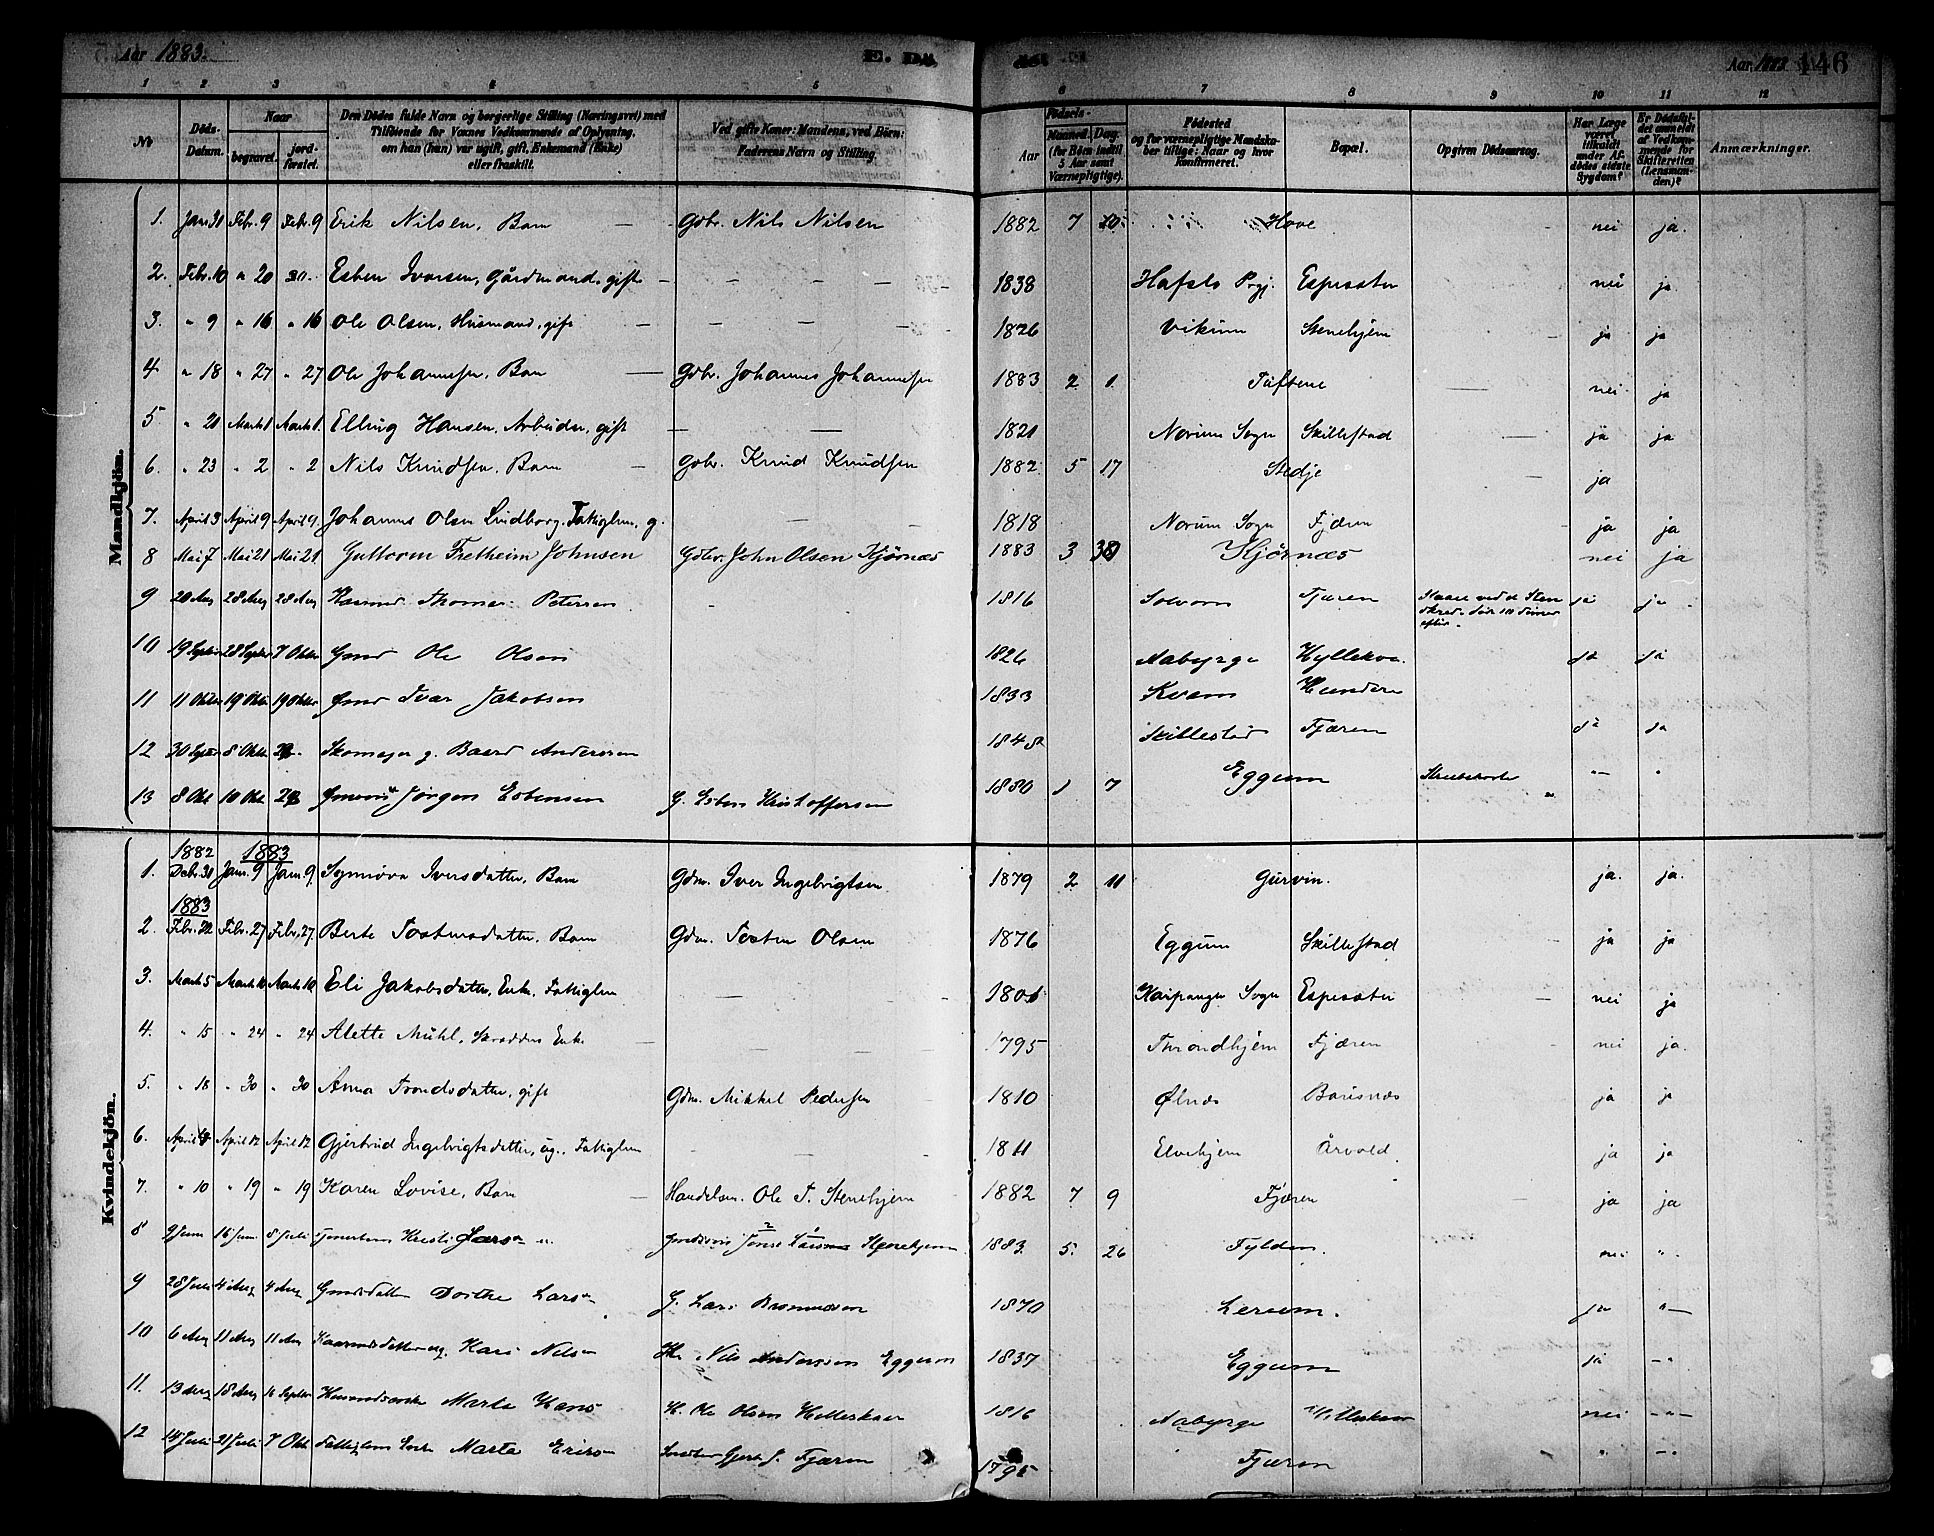 Aar 1883.
E. Dø
Aar 1883 146
1 2 3 4 5 6 7 8 9 10 11 12
No
Døds-Datum.
Naar
begravet.
jord-fæstet.
Den Dødes fulde Navn og borgerlige Stilling (Næringsvei) med
Tilføiende for Voxnes Vedkommende af Oplysning,
om han (hun) var ugift, gift, Enkemand (Enke)
eller fraskilt.
Ved gifte Koner: Mandens, ved Børn:
Faderens Navn og Stilling.
Fødsels-
Aar
Maaned. Dag.
(for Børn indtil
5 Aar samt
Værnepligtige).
Fødested
og for værnepligtige Mandska-
ber tillige: Naar og hvor
konfirmeret.
Bopæl.
Opgiven Dødsaarsag.
Har Læge
været
tilkaldt
under Af-
dødes sidste
Sygdom?
Er Dødsfal-
det anmeldt
af Vedkom-
mende for
Skifteretten
(Lensman-
den)?
Anmærkninger.
Mandkjön.
1. Janr 31 Febr. 9 Febr. 9 Erik Nilsen, Barn — Gdbr. Nils Nilsen 1882 7 Hove nei ja.
2. Febr. 10 " 20 Esben Ivarsen, Gårdmand, gift — 1838 Hafslo Prgj. Espesæter nei ja
3. " 9 " 16 " 16 Ole Olsen, Husmand, gift — 1826 Vikum Stenehjem ja ja
4 " 18 " 27 " 27 Ole Johannesen, Barn — Gdbr. Johannes Johannesen 1883 2 1 Tuftene nei. ja
5 " 21 Marts 1 Marts 1. Elling Hansen, Arbeider, gift — 1821 Norum Sogn Skillestad ja ja
6. " 23 " 2 " 2 Nils Knudsen, Barn — Gdbr. Knud Knudsen 1882 5 17 Stedje ja
7. April 3 April 9 April 9. Johannes Olsen Lindborg, Fattiglem, g. 1818 Norum Sogn Fjæren ja ja
8 Mai 7 Mai 21 Mai 21 Guttorm Fretheim Johnsen Gdbr. John Olsen Kjørnæs 1883 3 Kjørnæs nei ja
9 20 Aug 28 Aug 28 Aug Rasmus Thomas Petersen 1816 Solvorn Fjæren ja ja
10 19 Septbr 28 Septbr 7 Oktbr Gmd Ole Olsen 1826 Aabyrge ja ja
11 11 Oktbr 19 Oktbr 19 Oktbr Gmd Ivar Jakobsen 1833 Kvam Hundere
12 30 Septbr 8 Oktbr Skomager g. Baard Andersen 1848 Skillestad Fjæren ja ja
13 8 Okt 10 Okt Jørgen Esbensen G. Esben Kristoffersen 1880 1 7 Eggum Strubehoste
Kvindekjön.
1882 1883
1. Debr. 31 Janr. 9 Janr. 9. Synnøva Iversdatter, Barn Gdm. Iver Ingebrigtsen 1879 2 11 Gurvin. ja. ja.
1883
2. Febr. 22 Febr. 27 Febr. 27. Berte Tostensdatter, Barn Gdm. Tosten Olsen 1876 Eggum Skillestad ja ja
3. Marts 5 Marts 10 Marts 10 Eli Jakobsdatter, Enke, Fattiglem — 1801 Kaupanger Sogn Espesæter nei ja
4. " 15 " 24 " 24 Alette Mühl, Skrædders Enke — 1795 Throndhjem Fjæren nei ja.
5. " 18 " 30 " 30 Anna Trondsdatter, gift Gdm. Mikkel Pedersen 1810 Ølnæs Barsnæs ja ja
6. April April 12 April 12 Gjertrud Ingebrigtsdatter, ug., Fattiglem — 1811 Elvehjem Årvold. ja ja
7. " 10 " 19 " 19 Karen Lovise, Barn — Handelsm. Ole T. Stenehjem 1882 7 9 Fjæren ja ja
8 9 Juni 16 Juni 8 Juli Kristi Larsd Stenehjem 1883. 5. 26 Fylden. nei " .
9 28 Juli 4 Aug 4 Aug Gmdsdatter Dorthe Larsd G. Lars Rasmussen 1870 Lerum. ja "—
10 6 Aug 11 Aug 11 Aug Kaarmdsdatter ug. Kari Nilsd Nils Anderssen Eggum 1837 Eggum ja —"
11. 13 Aug 18 Aug Septbr Husmandsenke Marta Hansd H. Ole Olsen 1816 Aabyrge nei —"—
12 14 Juli 21 Juli 7 Okt Fattiglem Enke Marta Eriksd Fjæren 1795 Fjæren " —"—